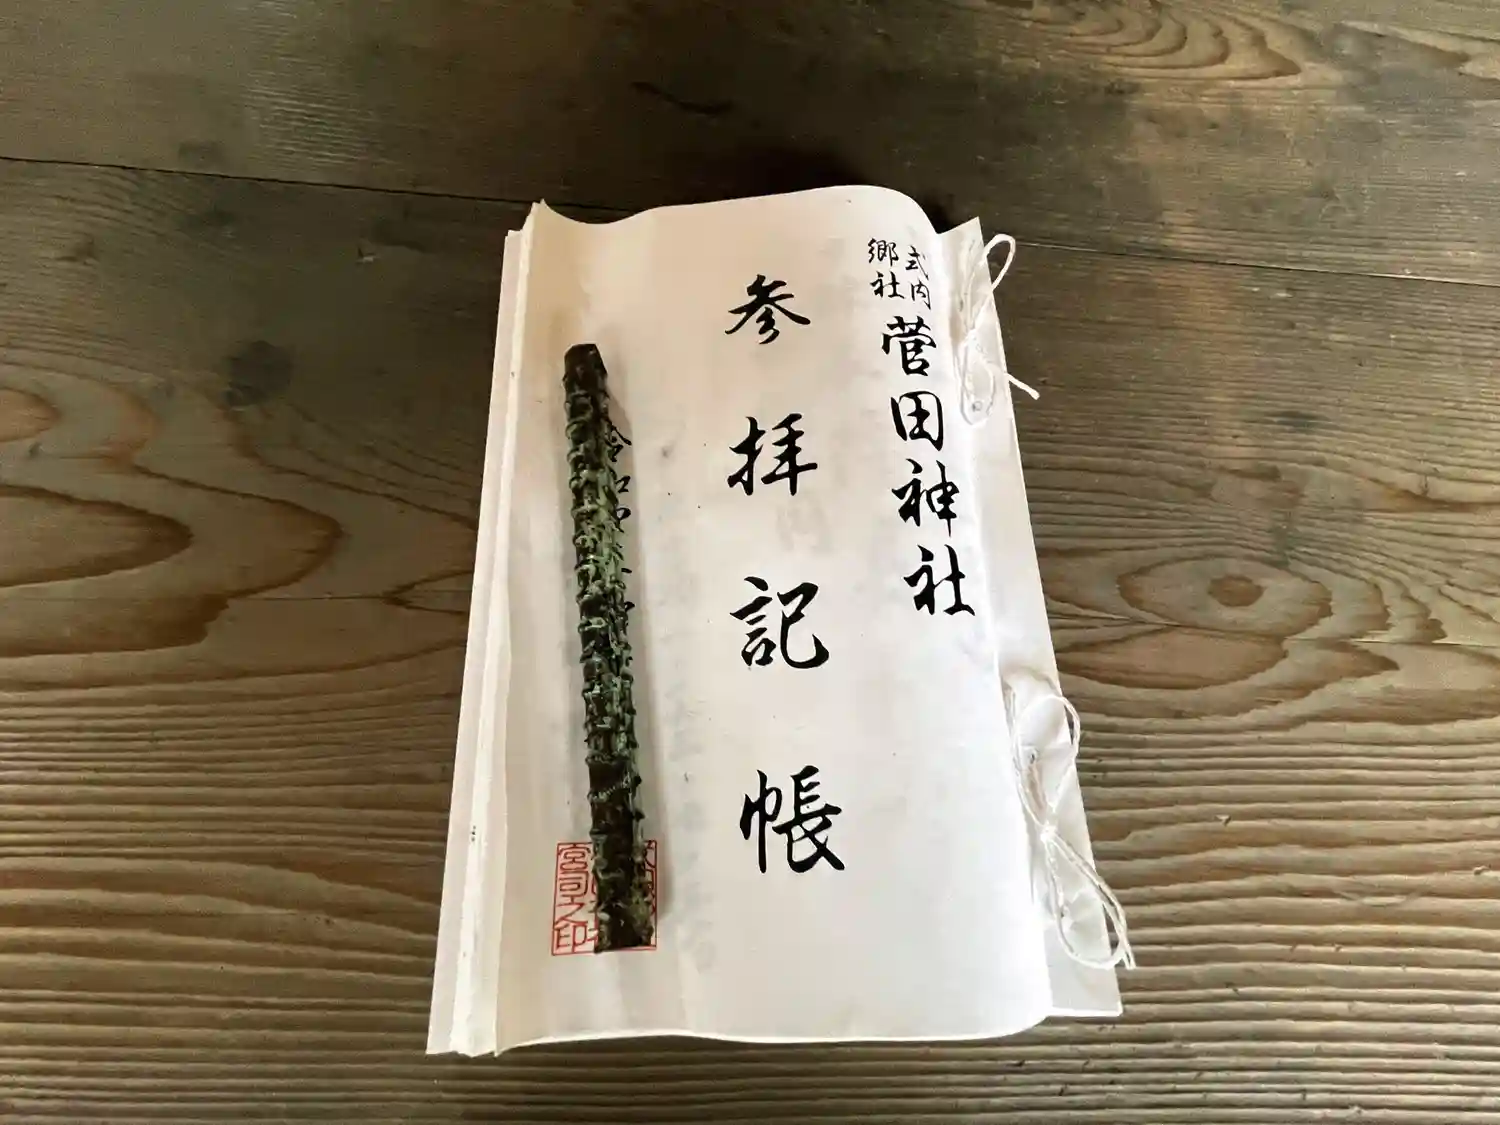 式内
郷社
菅田神社
参拝記帳
宮司之印